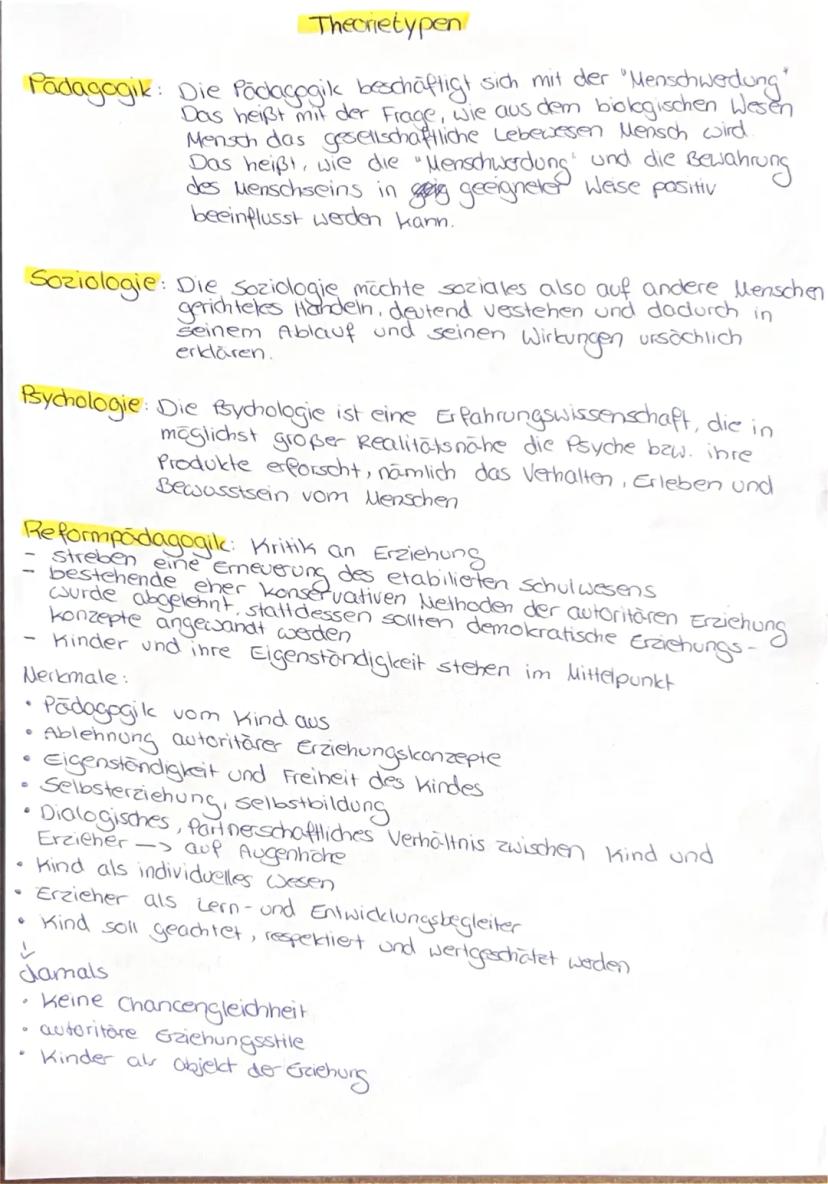 Theorietypen
Pädagogik: Die Pädagogik beschäftigt sich mit der "Menschwerdung"
Das heißt mit der Frage, wie aus dem biologischen Wesen
Mensch das gesellschaftliche Lebewesen Mensch wird.
Das heißt, wie die "Menschwerdung" und die Bewahrung
des Menschseins in geeigneter Weise positiv
beeinflusst werden kann.
Soziologie: Die Soziologie möchte soziales also auf andere Menschen
gerichtetes Handeln, deutend verstehen und dadurch in
seinem Ablauf und seinen Wirkungen ursächlich
erklären.
Psychologie: Die Psychologie ist eine Erfahrungswissenschaft, die in
möglichst großer Realitätsnähe die Psyche bzw. ihre
Produkte erforscht, nämlich das Verhalten, Erleben und
Bewusstsein vom Menschen
Reformpädagogik: Kritik an Erziehung
- streben eine Erneuerung des etabilierten Schulwesens
- bestehende eher konservativen Methoden der autoritären Erziehung
wurde abgelehnt, stattdessen sollten demokratische Erziehungs-
konzepte angewandt werden
- Kinder und ihre Eigenständigkeit stehen im Mittelpunkt
Merkmale:
• Pädagogik vom Kind aus
• Ablehnung autoritärer Erziehungskonzepte
• Eigenständigkeit und Freiheit des Kindes
• Selbsterziehung, Selbstbildung
• Dialogisches, Partnerschaftliches Verhältnis zwischen Kind und
Erzieher —> auf Augenhöhe
• Kind als individuelles Wesen
• Erzieher als Lern- und Entwicklungsbegleiter
• Kind soll geachtet, respektiert und wertgeschätzt werden
↓
damals
• keine Chancengleichheit
• autoritäre Erziehungsstile
• Kinder als Objekt der Erziehung